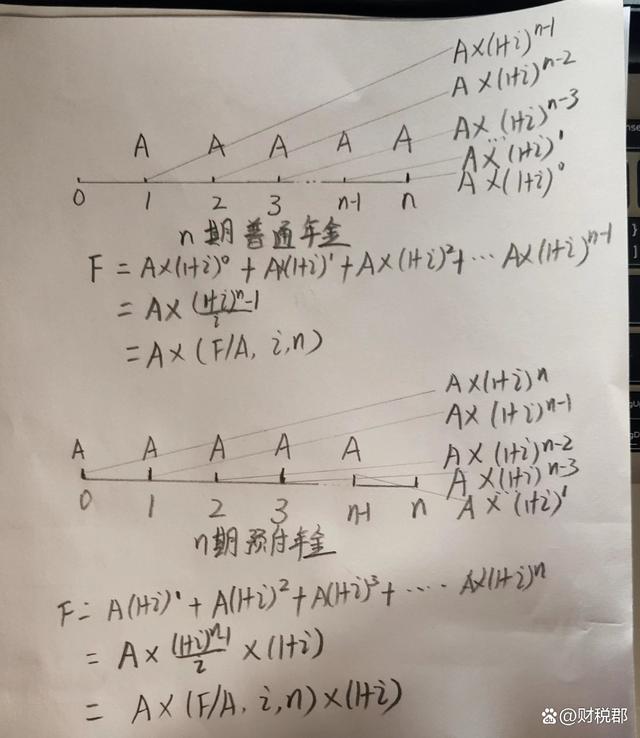 A×(1+i)^n-1
A×(1+i)^n-2
A×(1+i)^n-3
...
A×(1+i)^1
A×(1+i)^0
A A A A A
0 1 2 3 ... n-1 n
n期普通年金
F=A×(1+i)^0+A(1+i)^1+A×(1+i)^2+…A×(1+i)^n-1
=A×((1+i)^n-1)/i
=A×(F/A, i,n)
A×(1+i)^n
A×(1+i)^n-1
A×(1+i)^n-2
A×(1+i)^n-3
...
A×(1+i)^1
A A A A A
0 1 2 3 n-1 n
n期预付年金
F=A(1+i)^1+A(1+i)^2+A(1+i)^3+…·A×(1+i)^n
=A×((1+i)^n-1)/i×(1+i)
=A×(F/A, i,n)×(1+i)
@财税郡